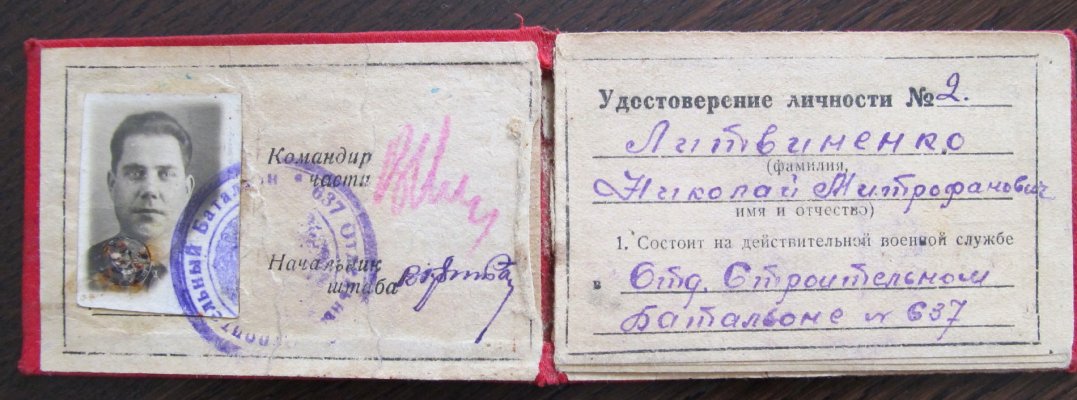 Командир
части
Начальник
штаба
637 Отдельный Строительный Батальон
Удостоверение личности № 2.
Литвиненко
(фамилия,
Николай Митрофанович
имя и отчество)
1. Состоит на действительной военной службе
в Отд. Строительном
Батальоне № 637